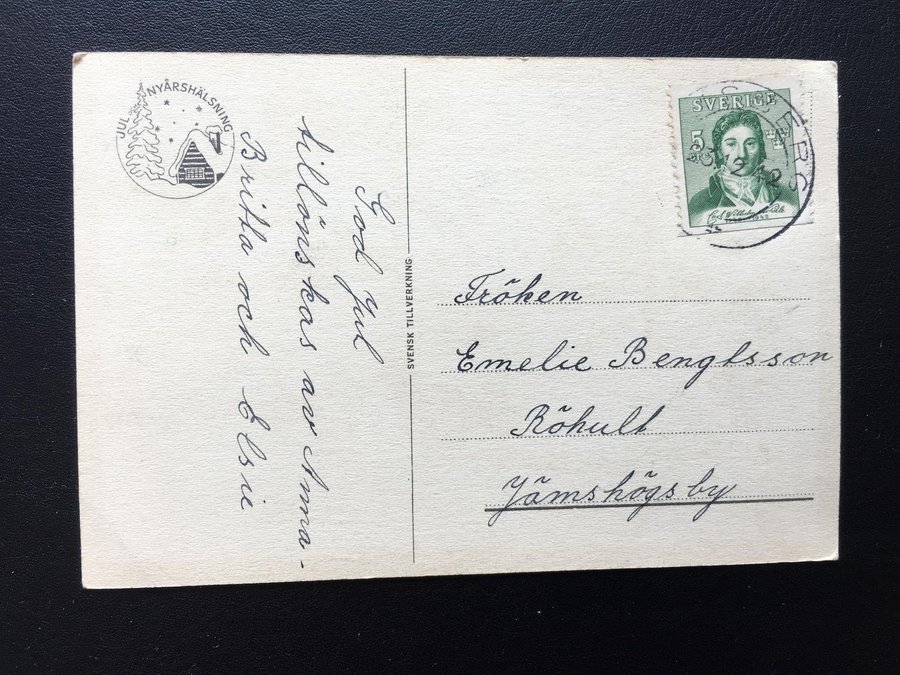 JUL & NYÅRSHÄLSNING
God Jul
tillönskas av Anna-
Britta och Elsie
SVENSK TILLVERKNING
SVERIGE
5
Fröken
Emelie Bengtsson
Röhult
Jämshögsby